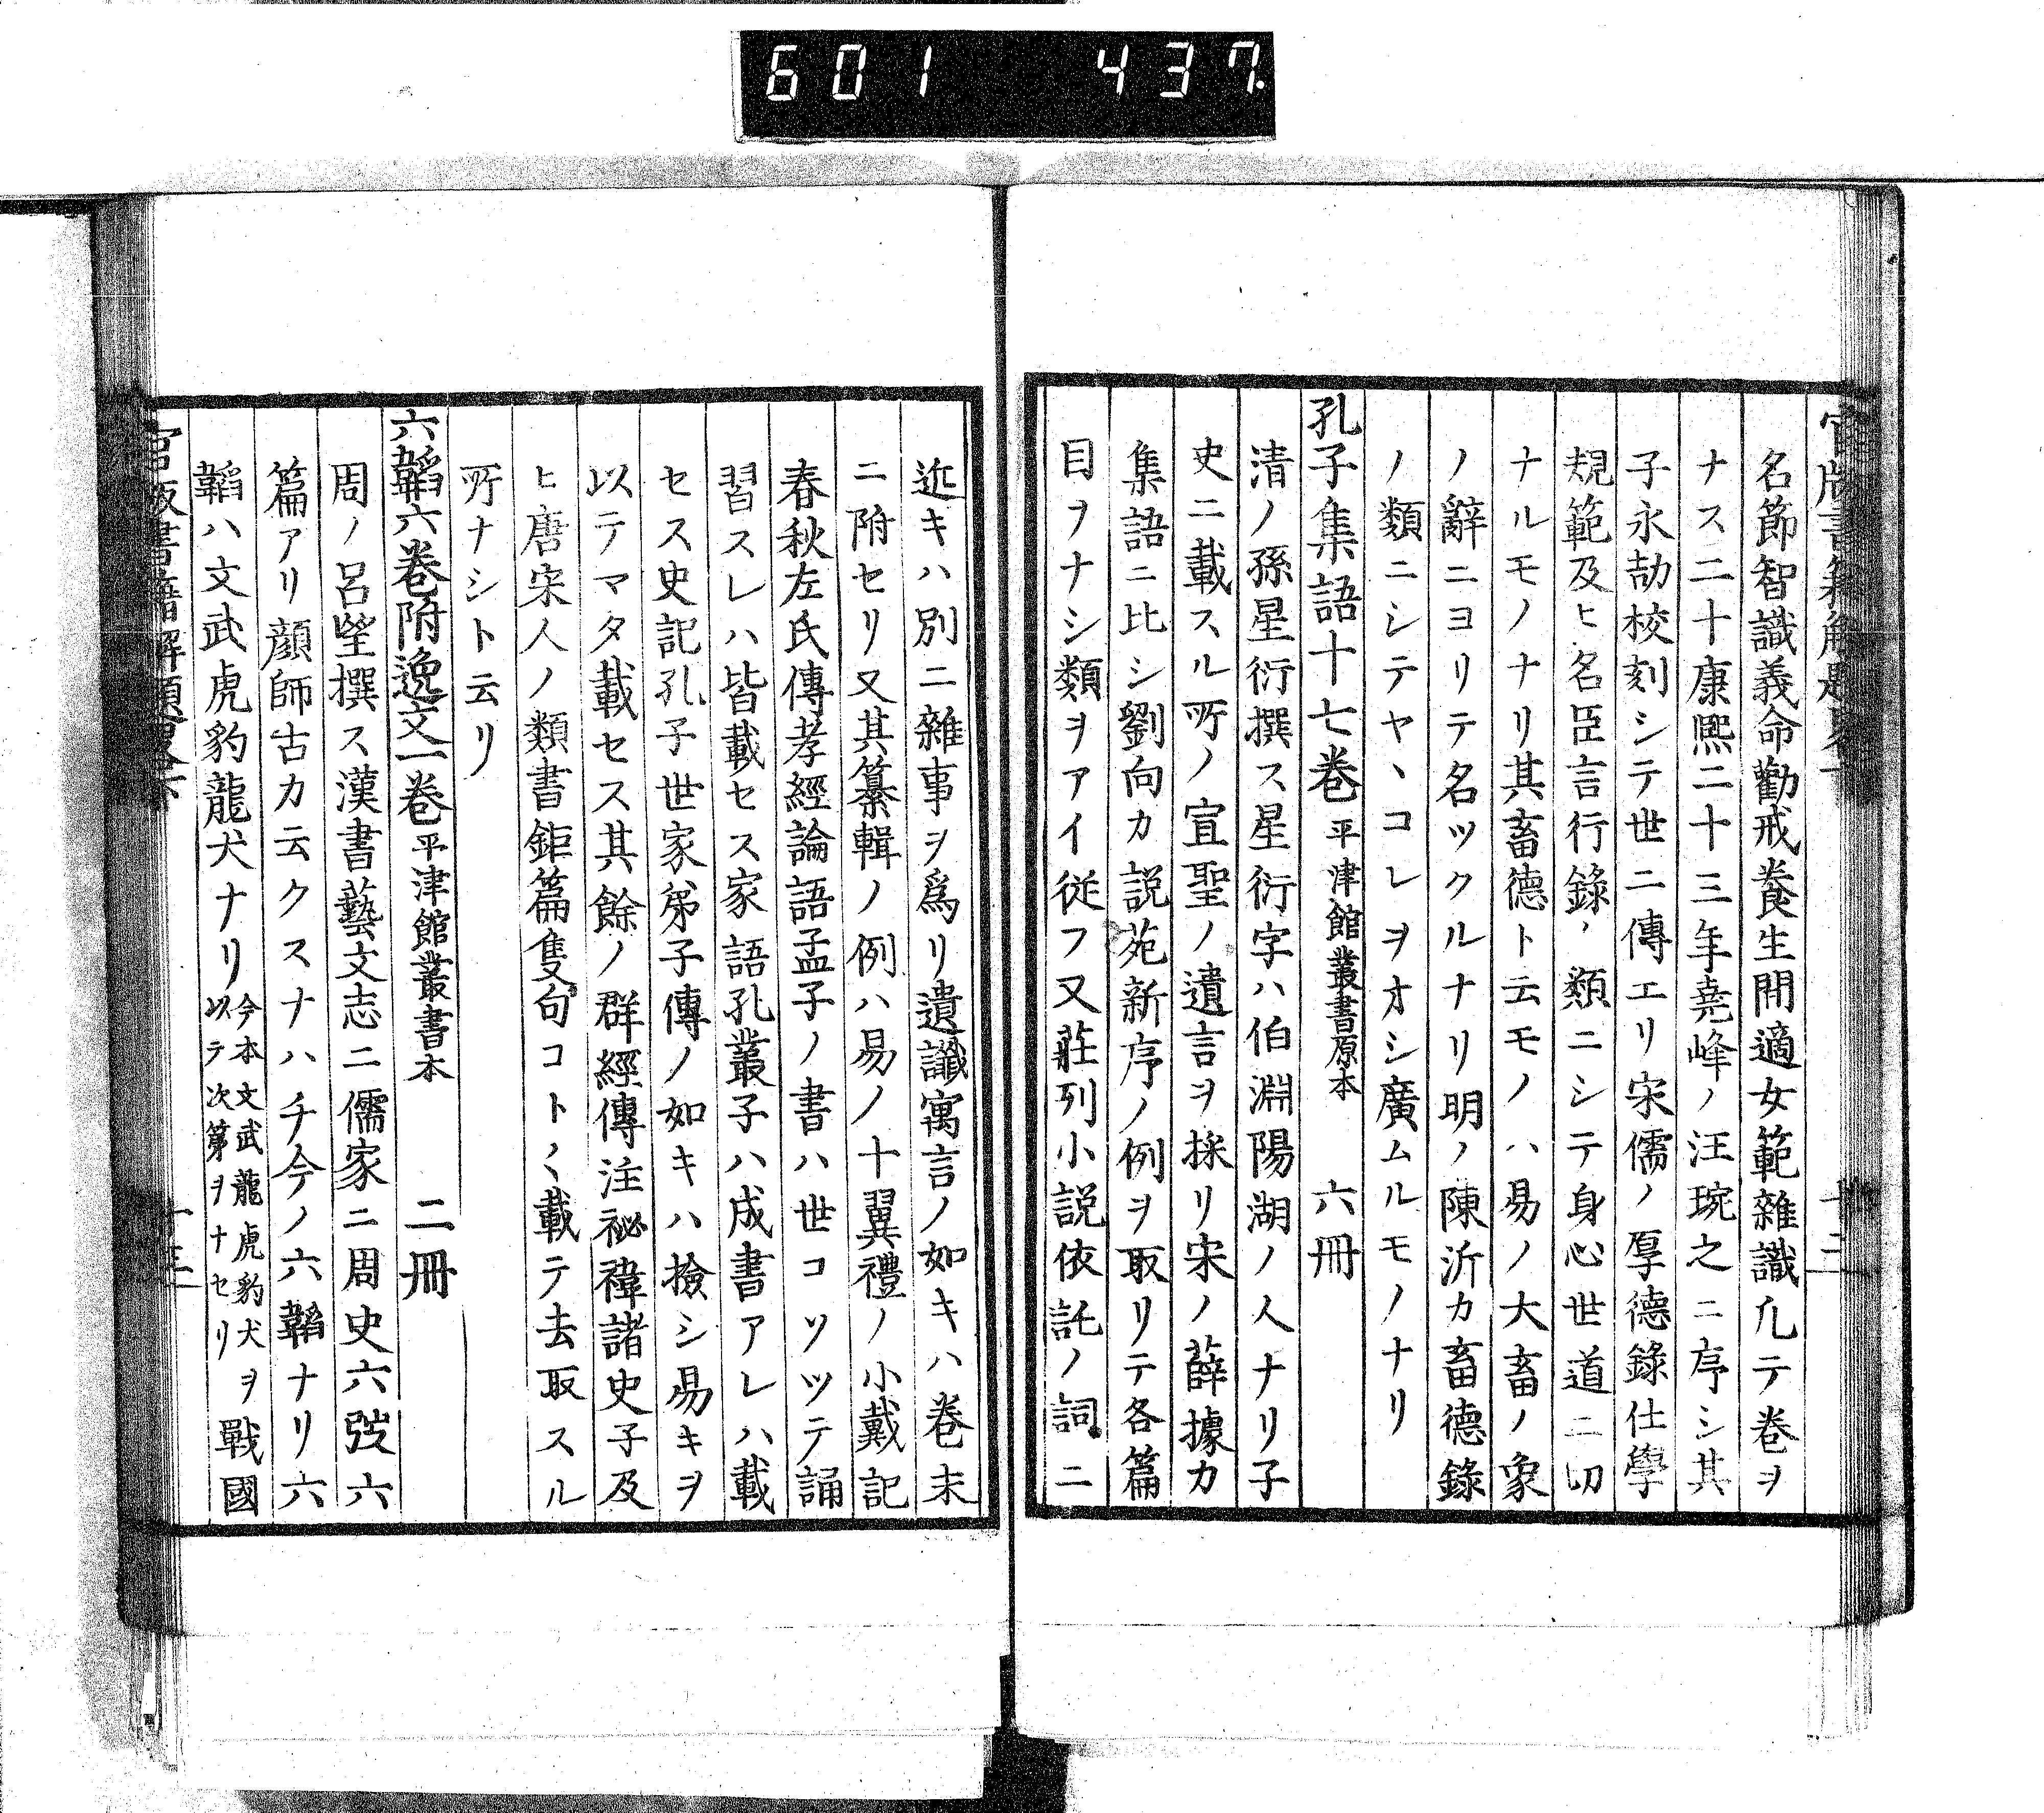 601 437.
名節智識義命勸戒養生閒適女範雜識凢テ巻ヲ
ナス二十康熙二十三年堯峰ノ汪琬之ニ序シ其
子永劼校刻シテ世ニ傳エリ宋儒ノ厚德錄仕學
規範及ヒ名臣言行錄ノ類ニシテ身心世道ニ切
ナルモノナリ其畜德ト云モノハ易ノ大畜ノ象
ノ辭ニヨリテ名ツクルナリ明ノ陳沂カ畜德錄
ノ類ニシテヤヽコレヲオシ廣ムルモノナリ
孔子集語十七巻 平津館叢書原本 六冊
清ノ孫星衍撰ス星衍字ハ伯淵陽湖ノ人ナリ子
史ニ載スル所ノ宣聖ノ遺言ヲ採リ宋ノ薛據カ
集語ニ比シ劉向カ説苑新序ノ例ヲ取リテ各篇
目ヲナシ類ヲアイ従フ又莊列小説依託ノ詞ニ
近キハ別ニ雜事ヲ爲リ遺讖寓言ノ如キハ巻末
ニ附セリ又其纂輯ノ例ハ易ノ十翼禮ノ小戴記
春秋左氏傳孝經論語孟子ノ書ハ世コソツテ誦
習スレハ皆載セス家語孔叢子ハ成書アレハ載
セス史記孔子世家弟子傳ノ如キハ撿シ易キヲ
以テマタ載セス其餘ノ群經傳注祕緯諸史子及
ヒ唐宋人ノ類書鉅篇隻句コト〱載テ去取スル
所ナシト云リ
六韜六巻附逸文一巻 平津館叢書本 二冊
周ノ呂望撰ス漢書藝文志ニ儒家ニ周史六弢六
篇アリ顔師古カ云クスナハチ今ノ六韜ナリ六
韜ハ文武虎豹龍犬ナリ 今本文武龍虎豹犬ヲ以テ次第ヲナセリ 戰國
官版書籍解題畧下 十三